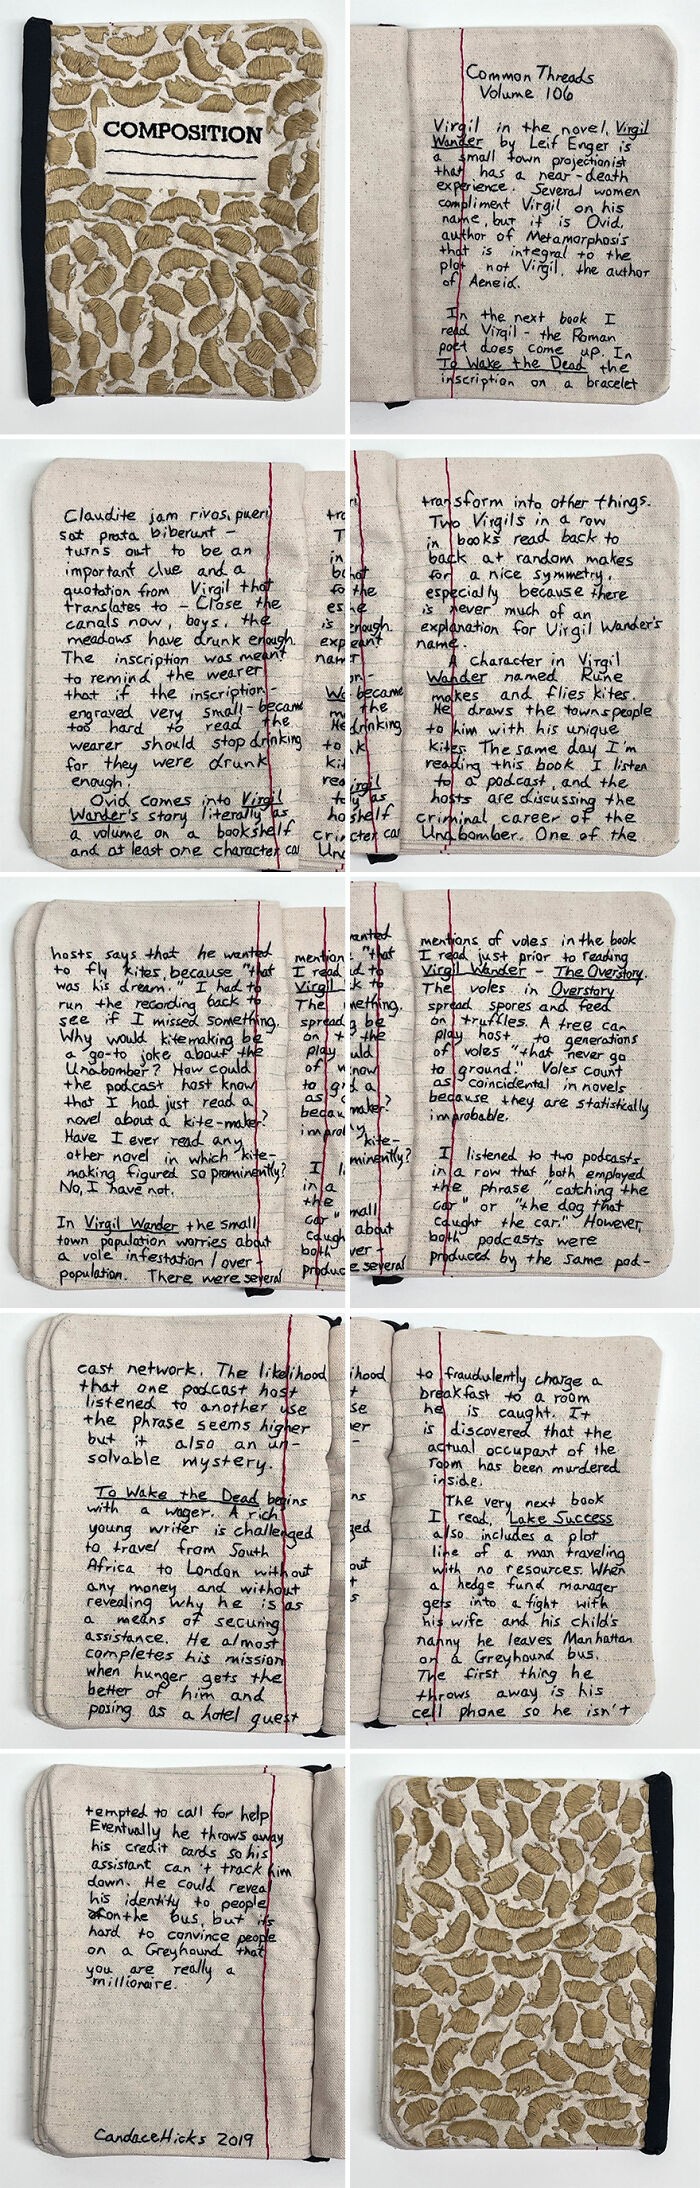 COMPOSITION
Common Threads
Volume 106
Virgil in the novel, Virgil
Wander by Leif Enger is
a small town projectionist
that has a near-death
experience. Several women
compliment Virgil on his
name, but it is Ovid,
author of Metamorphosis
that is integral to the
plot not Virgil, the author
of Aeneid.
In the next book I
read Virgil - the Roman
poet does come up. In
To Wake the Dead the
inscription on a bracelet
Claudite jam rivos, pueri
sat prata biberunt -
turns out to be an
important clue and a
quotation from Virgil that
translates to - Close the
canals now, boys, the
meadows have drunk enough.
The inscription was meant
to remind the wearer
that if the inscription -
engraved very small - became
too hard to read the
wearer should stop drinking
for they were drunk
enough.
Ovid comes into Virgil
Wander's story literally as
a volume on a bookshelf
and at least one character can
transform into other things.
Two Virgils in a row
in books read back to
back at random makes
for a nice symmetry,
especially because there
is never much of an
explanation for Virgil Wander's
name.
A character in Virgil
Wander named Rune
makes and flies kites.
He draws the townspeople
to him with his unique
kites. The same day I'm
reading this book I listen
to a podcast, and the
hosts are discussing the
criminal career of the
Unabomber. One of the
hosts says that he wanted
to fly kites, because "that
was his dream." I had to
run the recording back to
see if I missed something.
Why would kitemaking be
a go-to joke about the
Unabomber? How could
the podcast host know
that I had just read a
novel about a kite-maker?
Have I ever read any
other novel in which kite-
making figured so prominently?
No, I have not.
In Virgil Wander the small
town population worries about
a vole infestation / over-
population. There were several
mentions of voles in the book
I read just prior to reading
Virgil Wander - The Overstory.
The voles in Overstory
spread spores and feed
on truffles. A tree can
play host to generations
of voles "that never go
to ground." Voles count
as coincidental in novels
because they are statistically
improbable.
I listened to two podcasts
in a row that both employed
the phrase "catching the
car" or "the dog that
caught the car." However,
both podcasts were
produced by the same pod-
cast network. The likelihood
that one podcast host
listened to another use
the phrase seems higher
but it also an un-
solvable mystery.
To Wake the Dead begins
with a wager. A rich
young writer is challenged
to travel from South
Africa to London without
any money and without
revealing why he is as
a means of securing
assistance. He almost
completes his mission
when hunger gets the
better of him and
posing as a hotel guest
to fraudulently charge a
breakfast to a room
he is caught. It
is discovered that the
actual occupant of the
room has been murdered
inside.
The very next book
I read, Lake Success
also includes a plot
line of a man traveling
with no resources. When
a hedge fund manager
gets into a fight with
his wife and his child's
nanny he leaves Manhattan
on a Greyhound bus.
The first thing he
throws away is his
cell phone so he isn't
tempted to call for help
Eventually he throws away
his credit cards so his
assistant can't track him
down. He could reveal
his identity to people
on the bus, but its
hard to convince people
on a Greyhound that
you are really a
millionaire.
Candace Hicks 2019